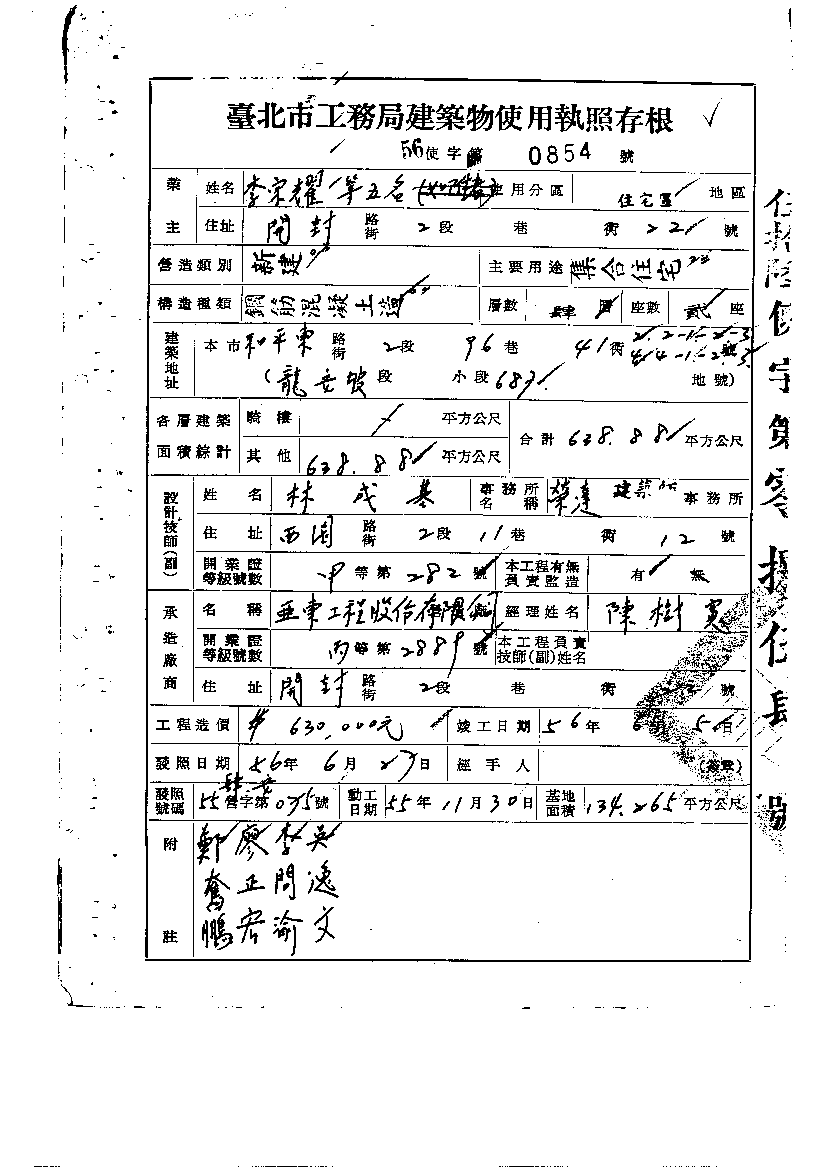 臺北市工務局建築物使用執照存根
56使字第 0854 號
業主 姓名 李宗耀等五名 使用分區 住宅區 地區
住址 開封 路街 2段 巷 衖 22 號
營造類別 新建 主要用途 集合住宅
構造種類 鋼筋混凝土造 層數 肆層 座數 貳座
建築地址 本市 和平東 路街 2段 96巷 41衖 2. 2-1. 2-2. 2-3 4. 4-1. 號
(龍安坡段 小段 683 地號)
各層建築面積綜計 騎樓 平方公尺 合計 638.88 平方公尺
其他 638.88 平方公尺
設計技師(副) 姓名 林成基 事務所名稱 榮達建築師事務所
住址 西園 路街 2段 11巷 衖 12號
開業證等級號數 甲等第 282 號 本工程有無負責監造 有 無
承造廠商 名稱 亞東工程股份有限公司 經理姓名 陳樹寬
開業證等級號數 丙等第 2889 號 本工程負責技師(副)姓名
住址 開封 路街 2段 巷 衖 22 號
工程造價 $ 630,000元 竣工日期 56年 6月 5日
發照日期 56年 6月 27日 經手人 (簽章)
發照號碼 55營字第 號 動工日期 55年 11月 30日 基地面積 134.265 平方公尺
附註 鄭奮鵬 廖正宏 李問渝 吳逸文
伍拾陸使字第零捌伍肆號